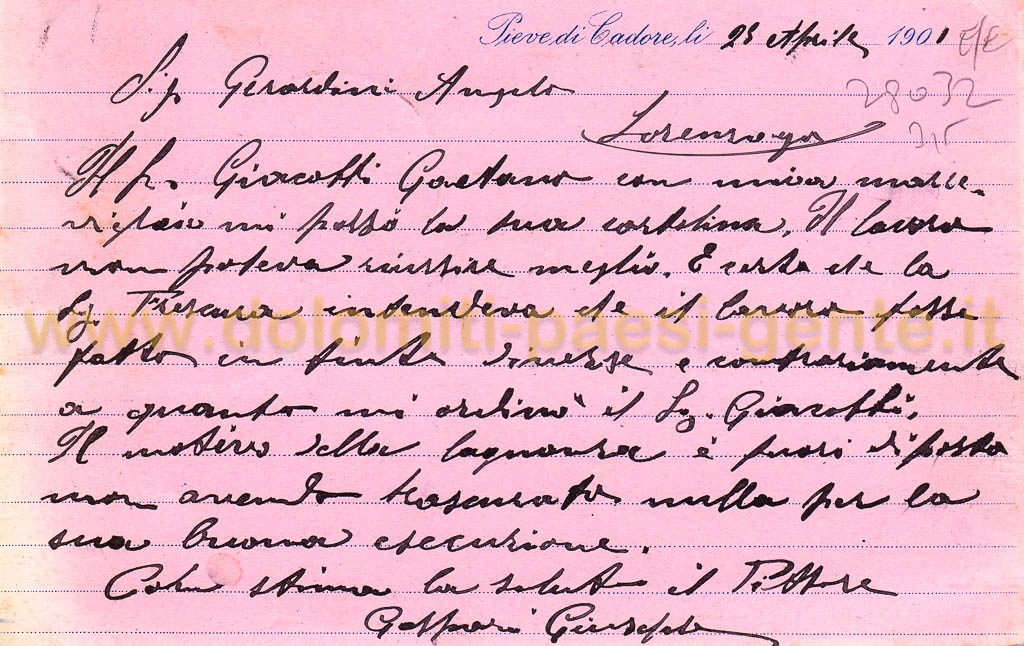 Pieve di Cadore, li 28 Aprile 1901
28032
Sig. Gerardini Angelo
Lorenzago
Il Sg. Giacobbi Gaetano con mia mara-
viglia mi passò la sua cartolina. Il lavoro
non poteva riussire meglio. È certo che la
Sg. Frescura intendeva che il lavoro fosse
fatto in tinte diverse e contrariamente
a quanto mi ordinò il Sg. Giacobbi.
Il motivo della lagnanza è fuori di posto
non avendo trascurato nulla per la
sua buona esecuzione.
Con stima la saluto il Pittore
Gaspari Giuseppe
www.dolomiti-paesi-gente.it